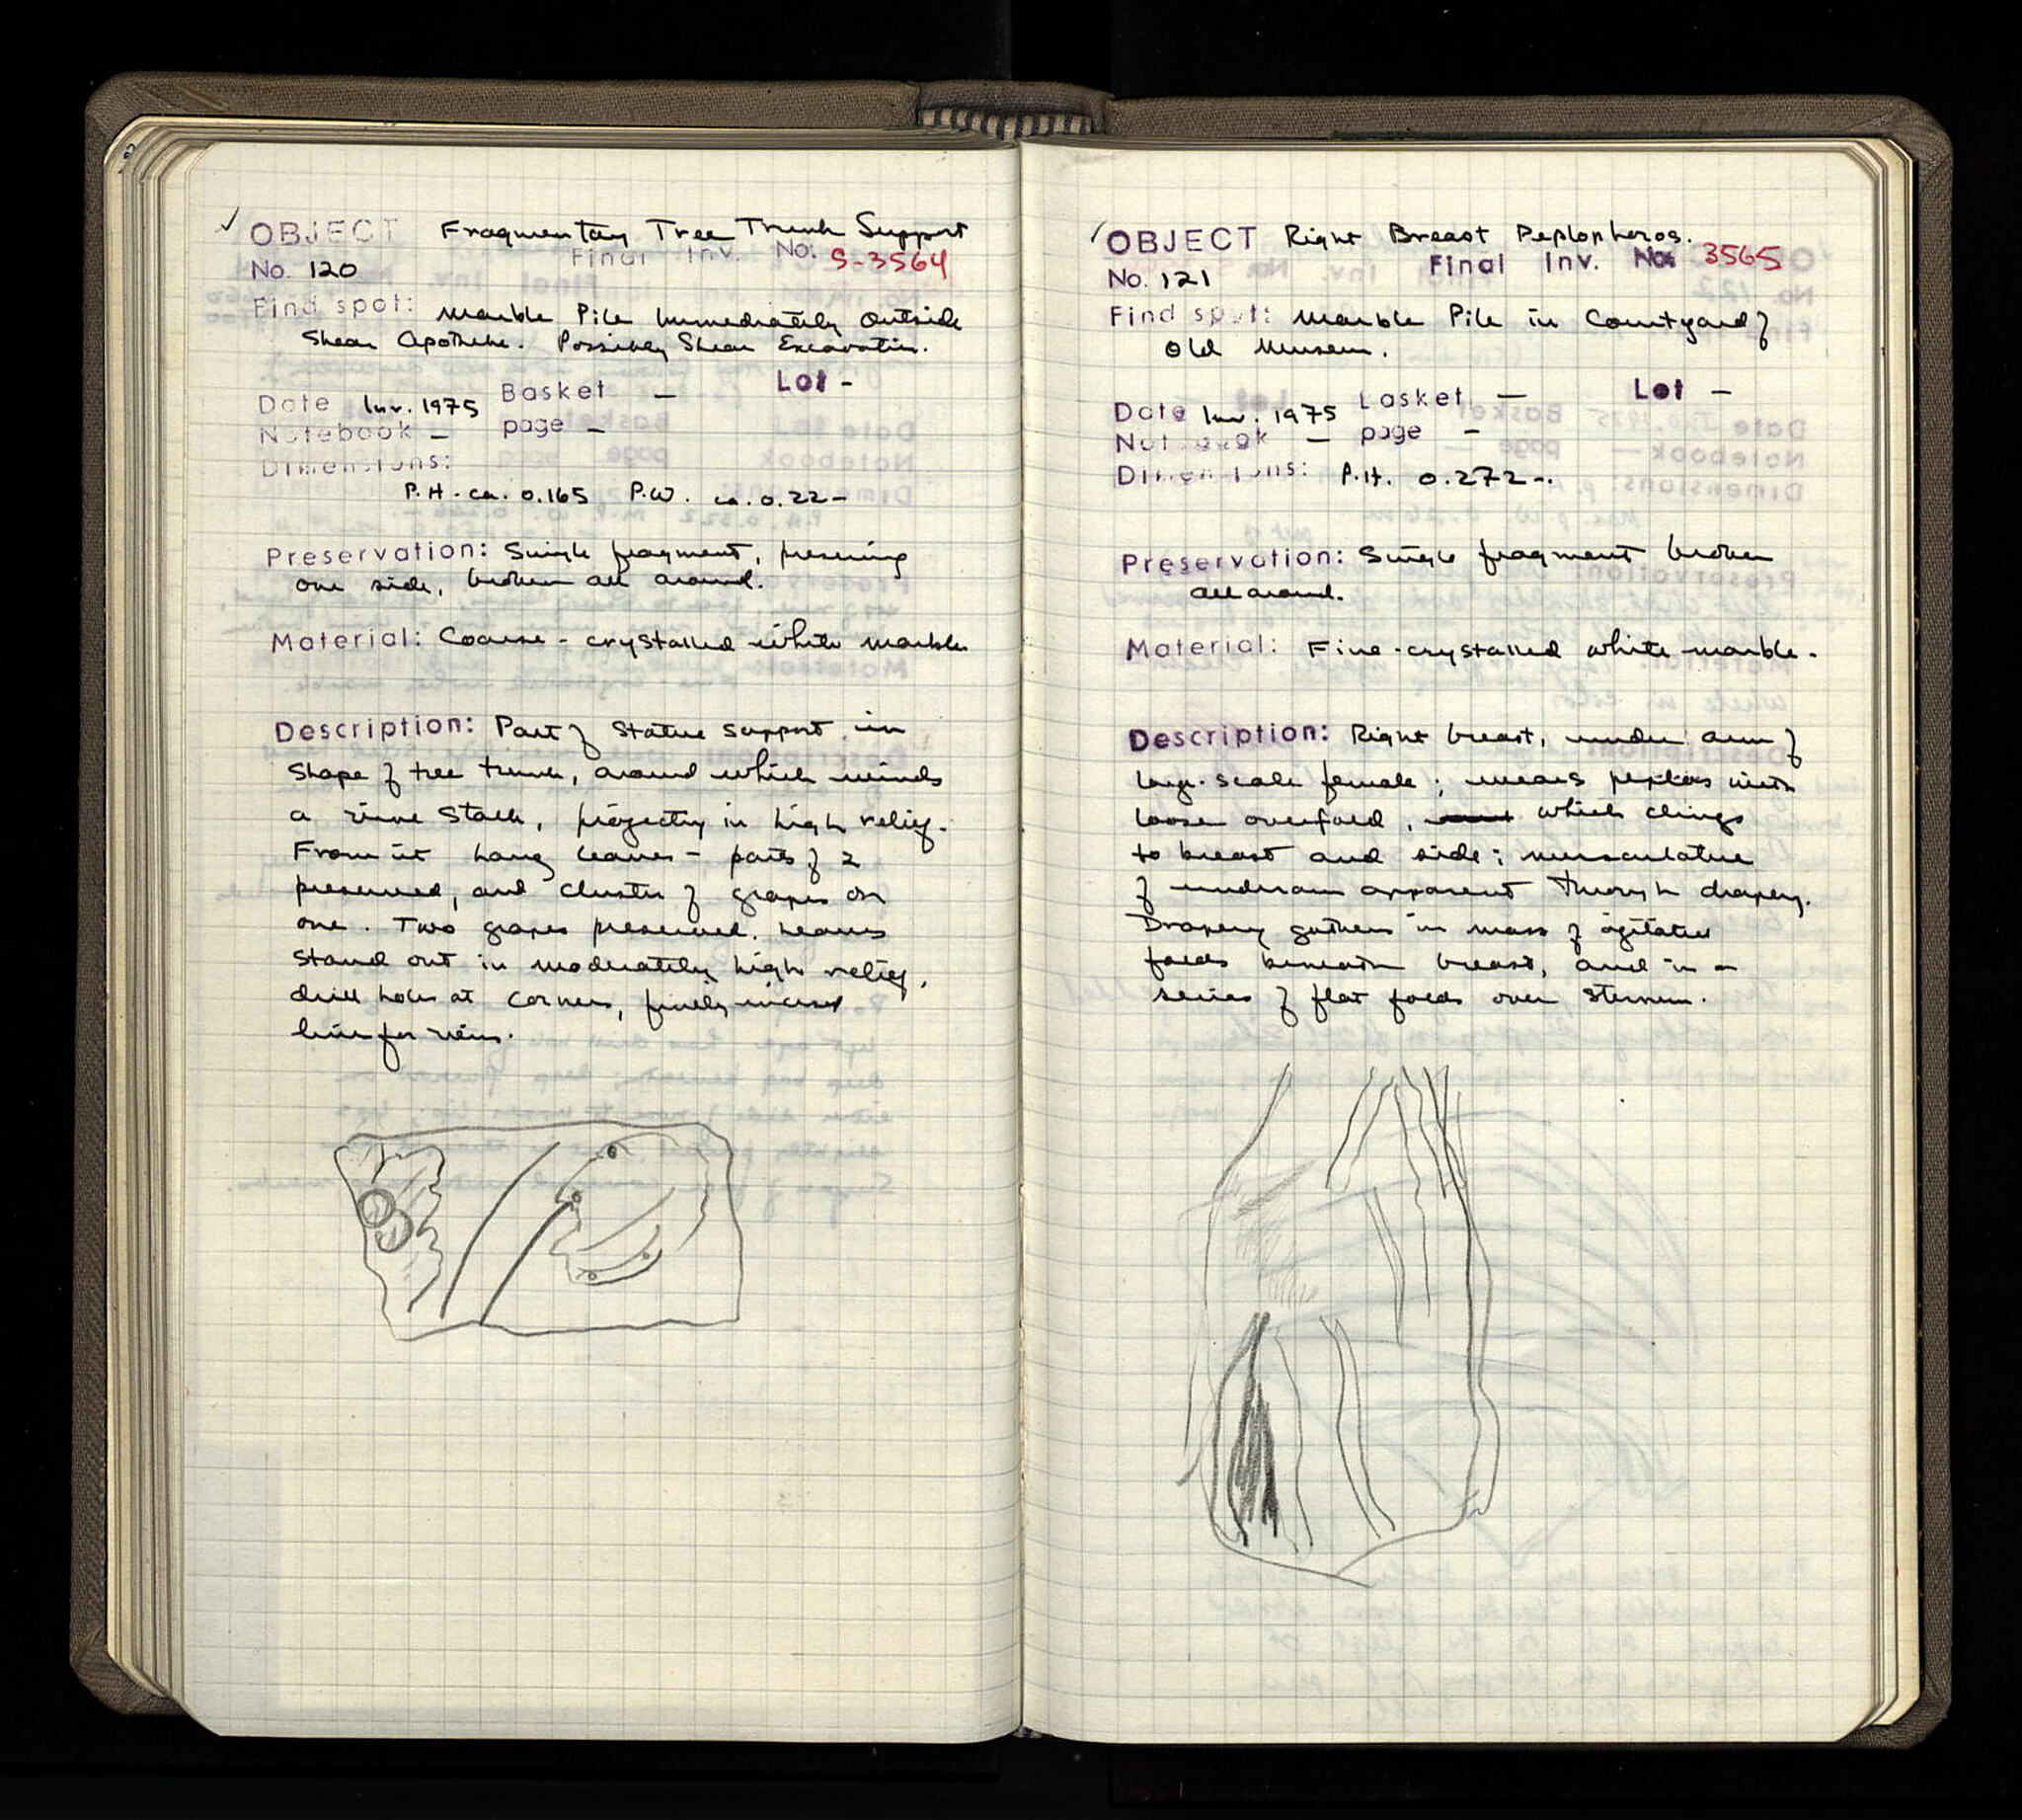 ✓ OBJECT Fragmentary Tree Trunk Support
Final Inv. No: S-3564
No. 120
Find spot: Marble Pile Immediately Outside
Shear Apotheke. Possibly Shear Excavation.
Date Inv. 1975 Basket — Lot -
Notebook — page -
Dimensions:
P.H. ca. 0.165 P.W. ca. 0.22-
Preservation: Single fragment, preserving
one side, broken all around.
Material: Coarse-crystalled white marble
Description: Part of statue support in
shape of tree trunk, around which winds
a vine stalk, projecting in high relief.
From it hang leaves - parts of 2
preserved, and cluster of grapes on
one. Two grapes preserved. Leaves
stand out in moderately high relief,
drill holes at corners, finely incised
line for veins.
✓ OBJECT Right Breast Peplophoros.
Final Inv. No: 3565
No. 121
Find spot: Marble Pile in Courtyard of
Old Museum.
Date Inv. 1975 Basket — Lot —
Notebook — page -
Dimensions: P.H. 0.272-.
Preservation: Single fragment broken
all around.
Material: Fine-crystalled white marble.
Description: Right breast, under arm of
large-scale female; wears peplos with
loose overfold, which clings
to breast and side; musculature
of underarm apparent through drapery.
Drapery gathers in mass of agitated
folds beneath breast, and in a
series of flat folds over sternum.